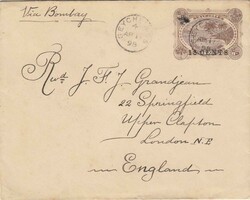 Via Bombay
SEYCHELLES
15 CENTS
J. F. J. Grandjean
22 Springfield
Upper Clapton
London N.E
England